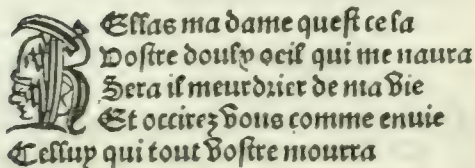 HEllas ma dame quest ce la
Vostre doulx oeil qui me naura
Sera il meurdrier de ma vie
Et occirez vous comme enuie
Celluy qui tout vostre mourra